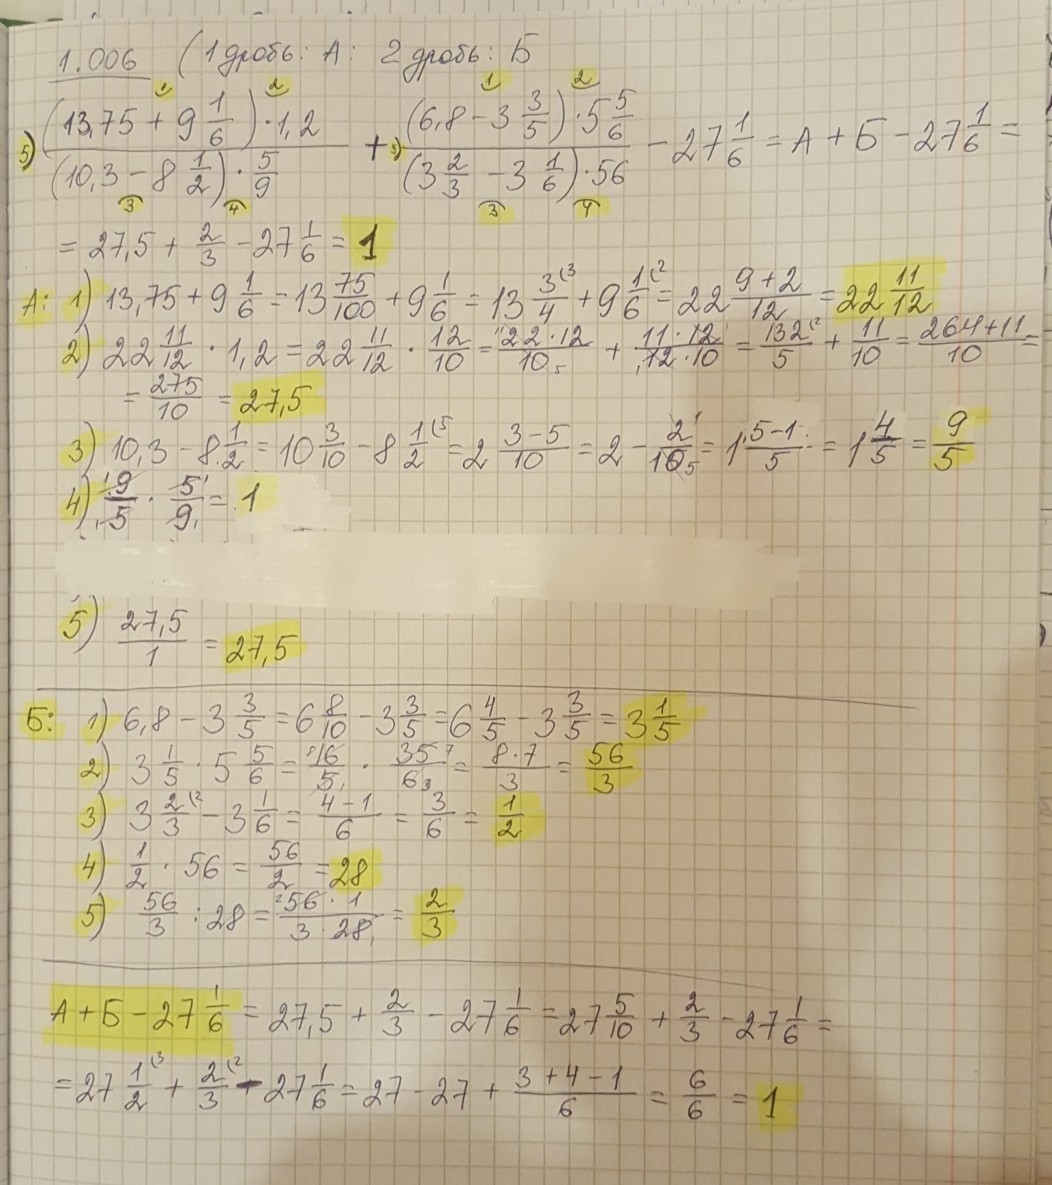 1.006 (1 дробь: А: 2 дробь: Б
5) ((13,75 + 9 1/6) · 1,2)/((10,3 − 8 1/2) · 5/9) + 5) ((6,8 − 3 3/5) · 5 5/6)/((3 2/3 − 3 1/6) · 56) − 27 1/6 = А + Б − 27 1/6 =
= 27,5 + 2/3 − 27 1/6 = 1
А: 1) 13,75 + 9 1/6 = 13 75/100 + 9 1/6 = 13 3/4 (3 + 9 1/6 (2 = 22 (9+2)/12 = 22 11/12
2) 22 11/12 · 1,2 = 22 11/12 · 12/10 = (22·12)/10 + (11·12)/(12·10) = 132/5 (2 + 11/10 = (264+11)/10 =
= 275/10 = 27,5
3) 10,3 − 8 1/2 = 10 3/10 − 8 1/2 (5 = 2 (3−5)/10 = 2 − 2/10 = 1 (5−1)/5 = 1 4/5 = 9/5
4) 9/5 · 5/9 = 1
5) 27,5/1 = 27,5
Б: 1) 6,8 − 3 3/5 = 6 8/10 − 3 3/5 = 6 4/5 − 3 3/5 = 3 1/5
2) 3 1/5 · 5 5/6 = 16/5 · 35/6 = (8·7)/3 = 56/3
3) 3 2/3 (2 − 3 1/6 = (4−1)/6 = 3/6 = 1/2
4) 1/2 · 56 = 56/2 = 28
5) 56/3 : 28 = (56 · 1)/(3 28) = 2/3
А + Б − 27 1/6 = 27,5 + 2/3 − 27 1/6 = 27 5/10 + 2/3 − 27 1/6 =
= 27 1/2 (3 + 2/3 (2 − 27 1/6 = 27 − 27 + (3+4−1)/6 = 6/6 = 1